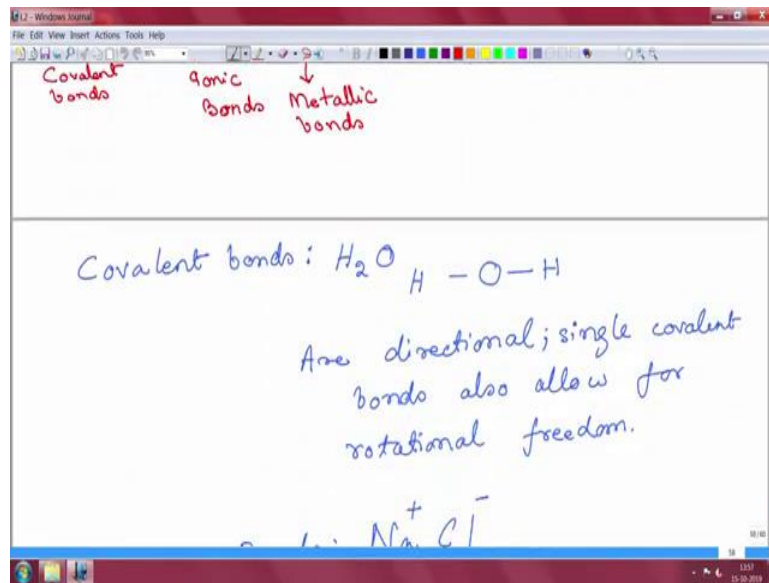 L2 - Windows Journal
File Edit View Insert Actions Tools Help
Covalent bonds
Ionic Bonds
Metallic bonds
Covalent bonds: H₂O H - O - H
Are directional; single covalent
bonds also allow for
rotational freedom.
Na⁺ Cl⁻
58
13:57
15-10-2019